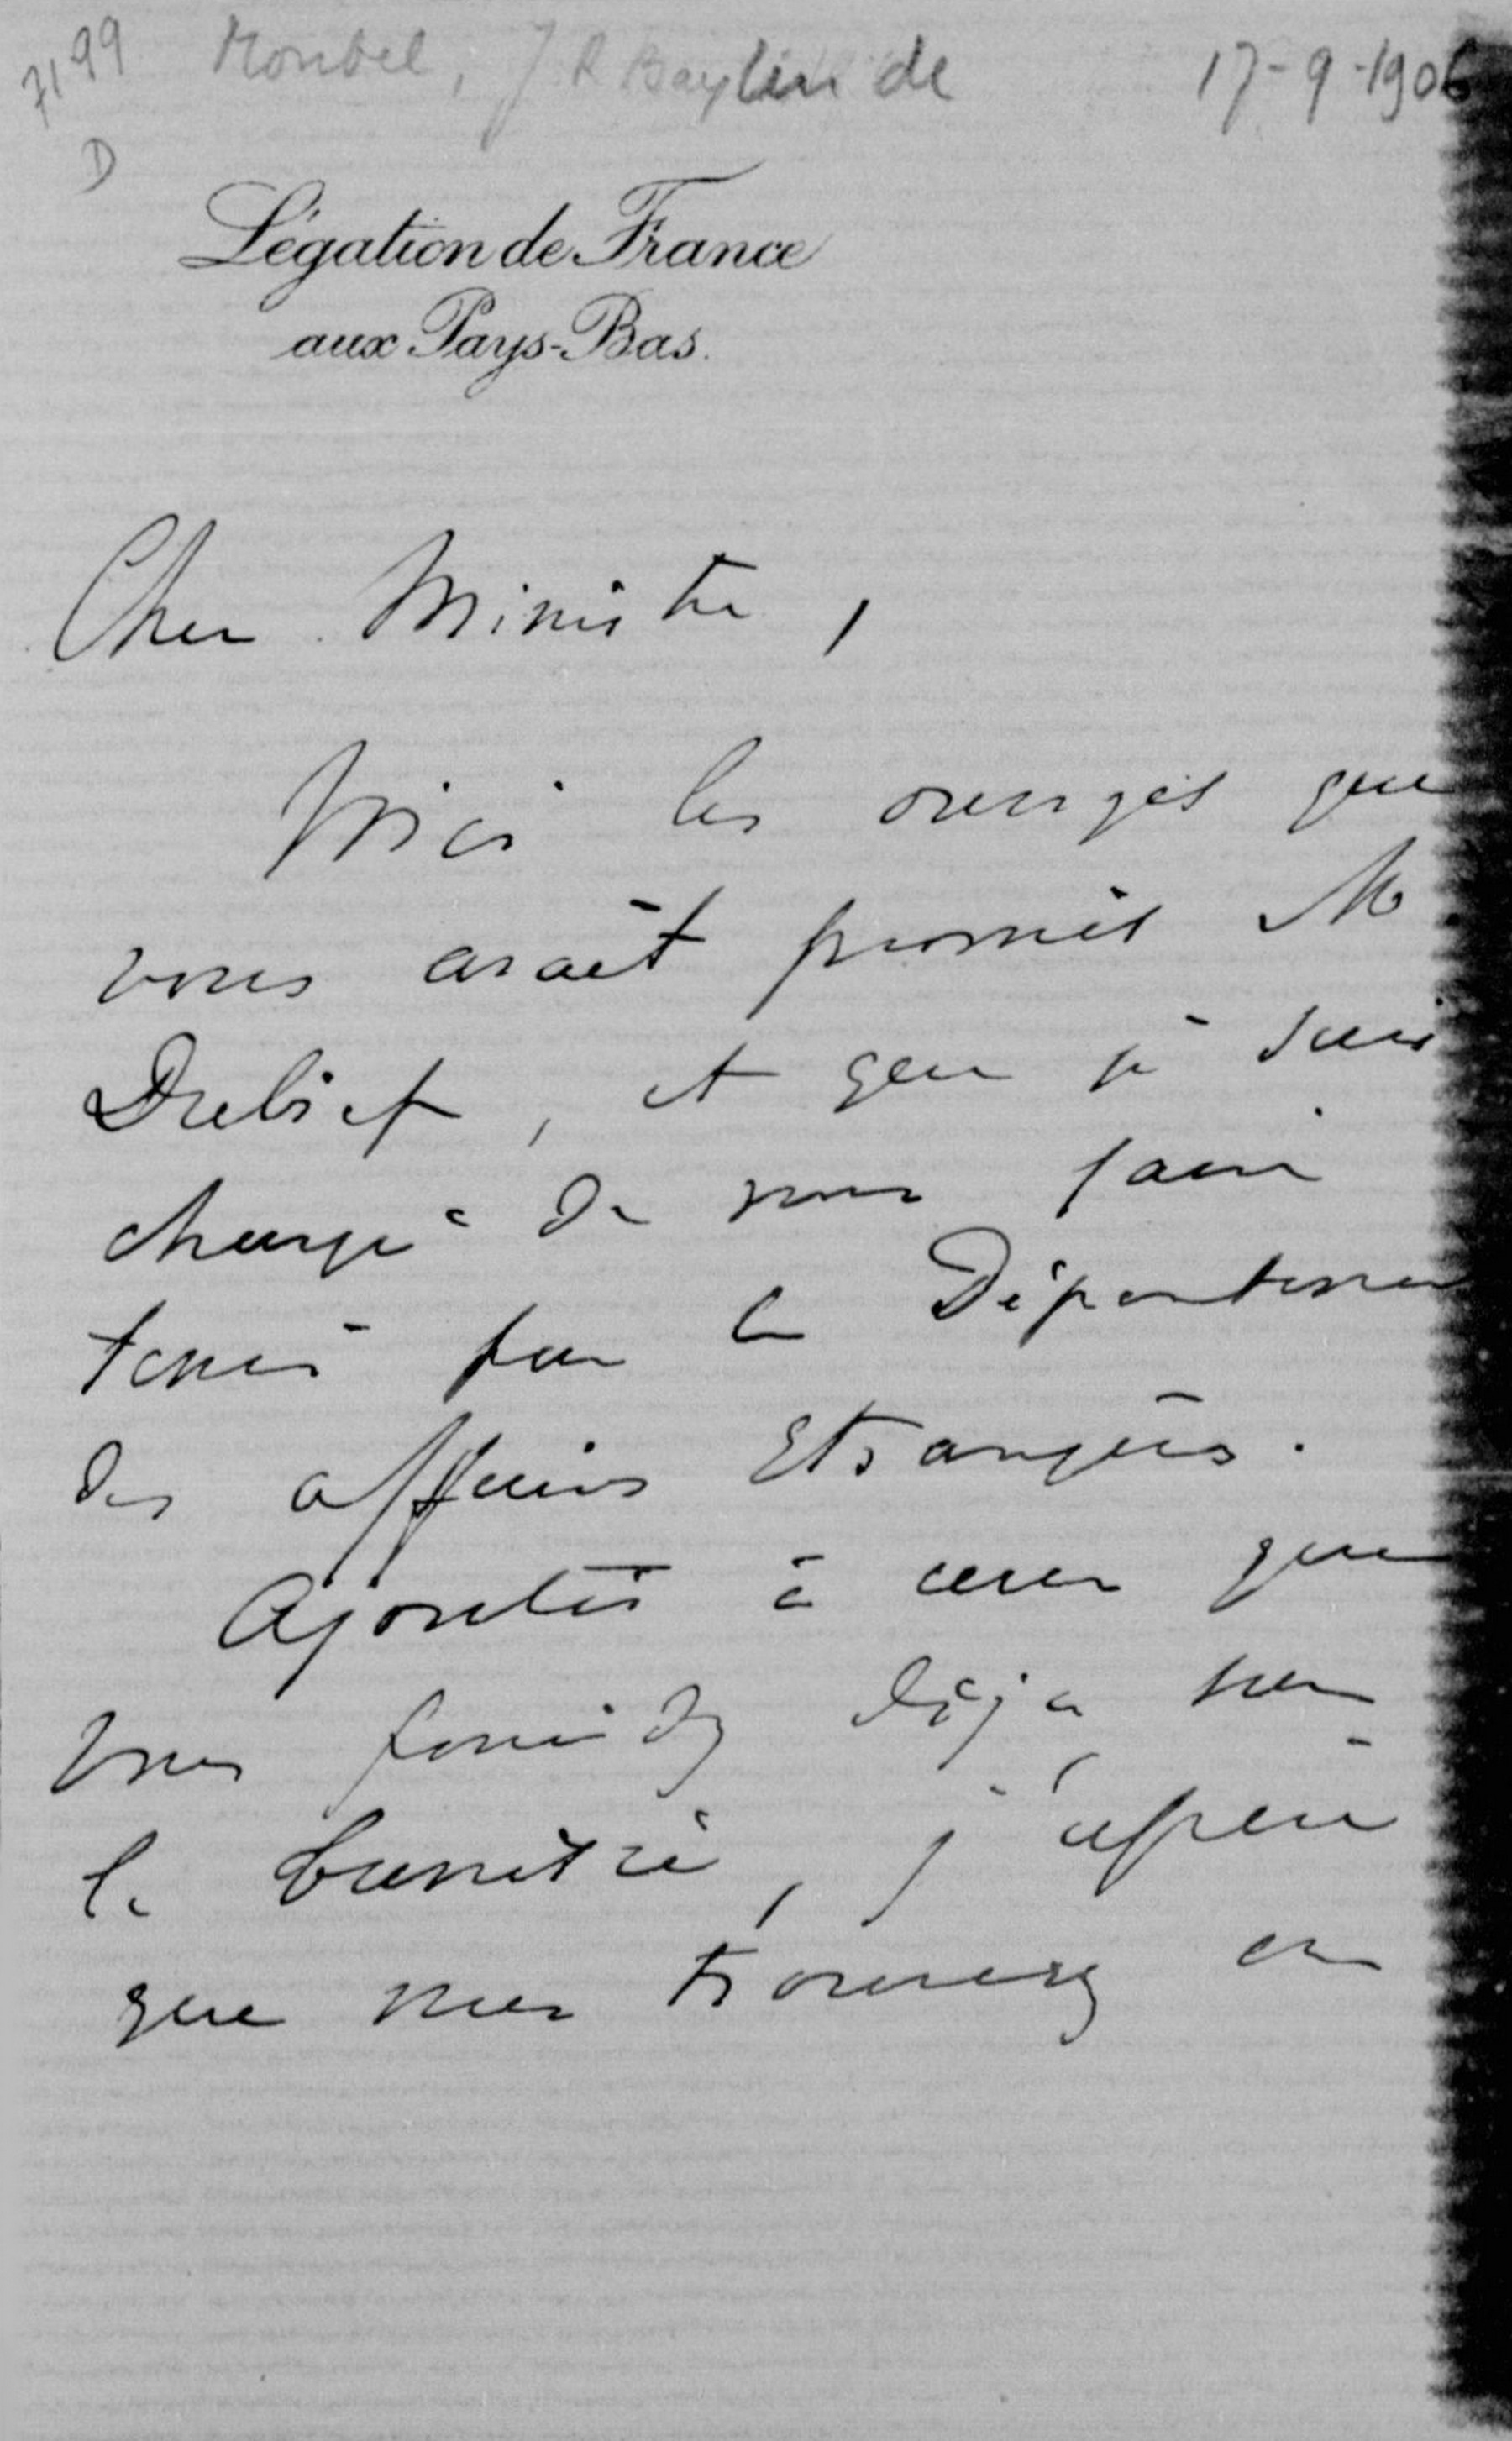 7199 Monbel, J R Baylin de 17-9-1906
D
Légation de France
aux Pays-Bas.
Cher Ministre,
Voici les ouvrages que
vous avait promis M.
Dubief, et que je suis
chargé de vous faire
tenir par le Département
des affaires Etrangères.
Ajoutés à ceux que
vous possédez déjà sur
la matière, j'espère
que vous trouverez en